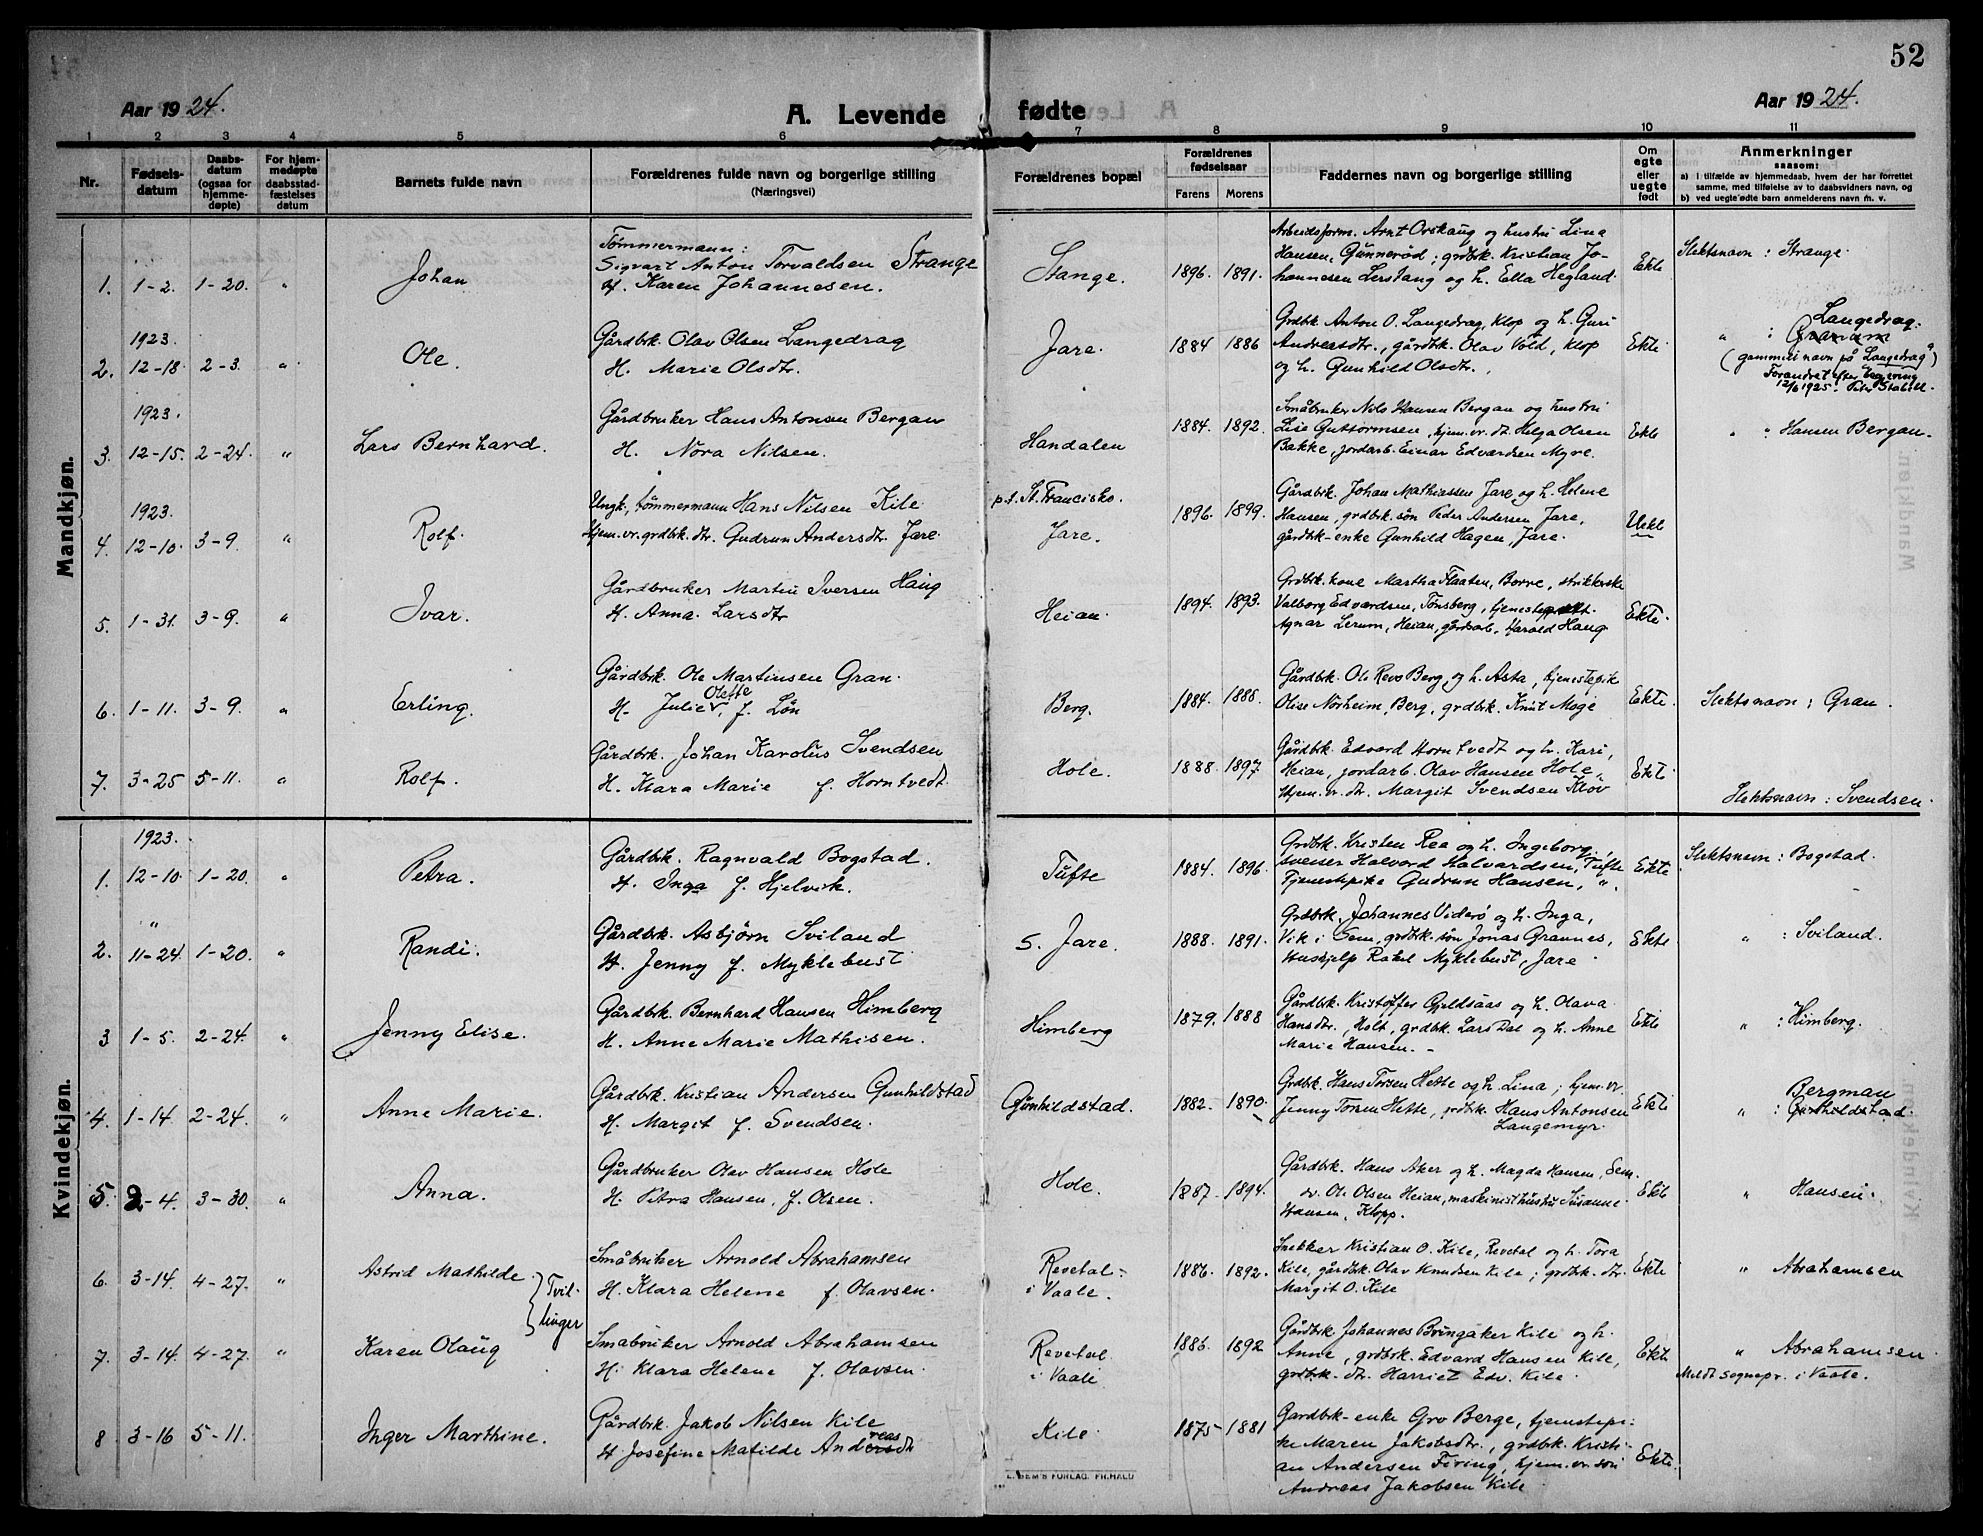 52
Aar 1924.
A. Levende fødte
Aar 1924.
1 2 3 4 5 6 7 8 9 10 11
Nr.
Fødsels-
datum
Daabs-
datum
(ogsaa for
hjemme-
døpte)
For hjem-
medøpte
daabsstad-
fæstelses
datum
Barnets fulde navn
Forældrenes fulde navn og borgerlige stilling
(Næringsvei)
Forældrenes bopæl
Forældrenes
fødselsaar
Farens Morens
Faddernes navn og borgerlige stilling
Om
egte
eller
uegte
født
Anmerkninger
saasom:
a) i tilfælde av hjemmedaab, hvem der har forrettet
samme, med tilføielse av to daabsvidners navn, og
b) ved uegte fødte barn anmelderens navn m. v.
Mandkjøn.
Tømmermann:
Sigvart Anton Torvaldsen Strange
1. 1-2. 1-20. " Johan H. Karen Johannesen.
Stange. 1896. 1891.
Arbeidsform. Arnt Orskaug og hustru Lina
Hansen, Gunnerød; grdbk. Kristian Jo-
hannesen Lerstang og h. Ella Hegland.
Ekte
Slektsnavn: Strange.
1923.
2. 12-18. 2-3. " Ole.
Gårdbk. Olav Olsen Langedrag
H. Marie Olsdtr.
Jare. 1884 1886
Grdbk. Anton O. Langedrag, Klop og h. Guri
Andreasdtr., gårdbk. Olav Vold, Klop
og h. Gunhild Olsdtr.
Ekte
Langedrag.
" :
(gammelt navn på "Langedrag")
Forandret efter
12/6 1925.
1923.
3. 12-15. 2-24. " Lars Bernhard.
Gårdbruker Hans Antonsen Bergan
H. Nora Nilsen.
Handalen 1884. 1892.
Småbruker Nils Hansen Bergan og hustru
Lise Guttormsen, hjem.vr. dt. Helga Olsen
Bakke, jordarb. Einar Edvardsen Myre.
Ekte
" " Hansen Bergan.
1923.
4. 12-10. 3-9. " Rolf.
Ungk., tømmermann Hans Nilsen Kile
Hjem.vr. grdbk. dtr. Gudrun Andersdtr. Jare.
p.t. St. Francisko.
Jare. 1896. 1899.
Gårdbk. Johan Mathiassen Jare og h. Helene
Hansen, grdbk. søn Peder Andersen Jare,
gårdbk-enke Gunhild Hagen, Jare.
Uekte
5. 1-31. 3-9. " Ivar.
Gårdbruker Martin Iversen Haug
H. Anna Larsdtr
Heian. 1894. 1893.
Grdbk. kone Martha Flaaten, Borre, strikkerske
Valborg Edvardsen, Tønsberg, tjenestegutt
Agnar Lerum, Heian, gårdsarb. Harald Haug
Ekte.
6. 1-11. 3-9. " Erling.
Gårdbrk. Ole Martinsen Gran.
H. Julie Olette, f. Løn
Berg. 1884. 1888.
Gårdbk. Ole Revo Berg, og h. Asta, tjenestepik
Olise Norheim, Berg, grdbk. Knut Moge
Ekte.
Slektsnavn: Gran.
7. 3-25 5-11. " Rolf.
Gårdbrk. Johan Karolus Svendsen
H. Klara Marie f. Horntvedt.
Hole. 1888. 1897
Gårdbk. Edvard Horntvedt og h. Kari,
Heian, jordarb. Olav Hansen Hole,
Hjem.vr. dt. Margit Svendsen Kløv
Ekte
Slektsnavn: Svendsen.
Kvindekjøn.
1923.
1. 12-10. 1-20. " Petra.
Gårdbk. Ragnvald Bogstad.
H. Inga f. Hjelvik.
Tufte 1884. 1896.
Grdbk. Kristen Rea og h. Ingeborg,
sveiser Halvord Halvardsen, Tufte
Tjenestepike Gudrun Hansen, ".
Ekte
Slektsnavn: Bogstad.
"
2. 11-24. 1-20. " Randi.
Gårdbk. Asbjørn Sviland
H. Jenny f. Myklebust
S. Jare. 1888. 1891.
Grdbrk. Johannes Viderø og h. Inga,
Vik i Sem, grdbk. søn Jonas Grannes,
Hushjelp Rakel Myklebust, Jare
Ekte
" : Sviland.
3 1-5. 2-24. " Jenny Elise.
Gårdbk. Bernhard Hansen Himberg
H. Anne Marie Mathisen.
Himberg 1879. 1888
Gårdbk. Kristoffer Gjeldsaas og h. Olava
Hansdtr., Holt, grdbk. Lars Dal og h. Anne
Marie Hansen. -
Ekte
" : Himberg.
4. 1-14. 2-24. " Anne Marie.
Gårdbk. Kristian Andersen Gunhildstad
H. Margit f. Svendsen.
Gunhildstad. 1882. 1890.
Grdbk. Hans Torsen Hette og h. Lina; hjem.vr.
Jenny Torsen Hette, grdbk. Hans Antonsen
Langemyr.
Ekte
Bergman
" : Gunhildstad.
5. 2-4. 3-30. " Anna.
Gårdbruker Olav Hansen Hole
H. Petra Hansen, f. Olsen.
Hole. 1887. 1894.
Gårdbk. Hans Aker og h. Magda Hansen, Sem.
Ole Olsen Heian, maskinisthustru Susanne
Hansen, Klopp.
Ekte
" Hansen.
6. 3-14. 4-27. " Astrid Mathilde.
Tvil-
linger
Småbruker Arnold Abrahamsen
H. Klara Helene f. Olavsen.
Revetal
i Vaale. 1886. 1892.
Snekker Kristian O. Kile, Revetal og h. Tora
Kile, gårdbk. Olav Knudsen Kile; grdbk. dtr.
Margit O. Kile
Ekte
" Abrahamsen
7. 3-14. 4-27. " Karen Olaug
Småbruker Arnold Abrahamsen
H. Klara Helene f. Olavsen.
Revetal
i Vaale. 1886. 1892
Gårdbk Johannes Bringaker Kile og h.
Anne, grdbk. Edvard Hansen Kile,
grdbk. dtr. Harriet Edv. Kile.
Ekte
" Abrahamsen.
Meldt sognepr. i Vaale.
8 3-16 5-11. " Inger Marthine.
Gårdbk. Jakob Nilsen Kile
H. Josefine Matilde Andreasdtr
Kile. 1875- 1881
Gardbk-enke Gro Berge, tjenestepi-
ke Maren Jakobsdtr., grdbk. Kristi-
an Andersen Firing, hjem.vr. søn
Andreas Jakobsen Kile
Ekte.
E. SEM'S FORLAG, FR.HALD